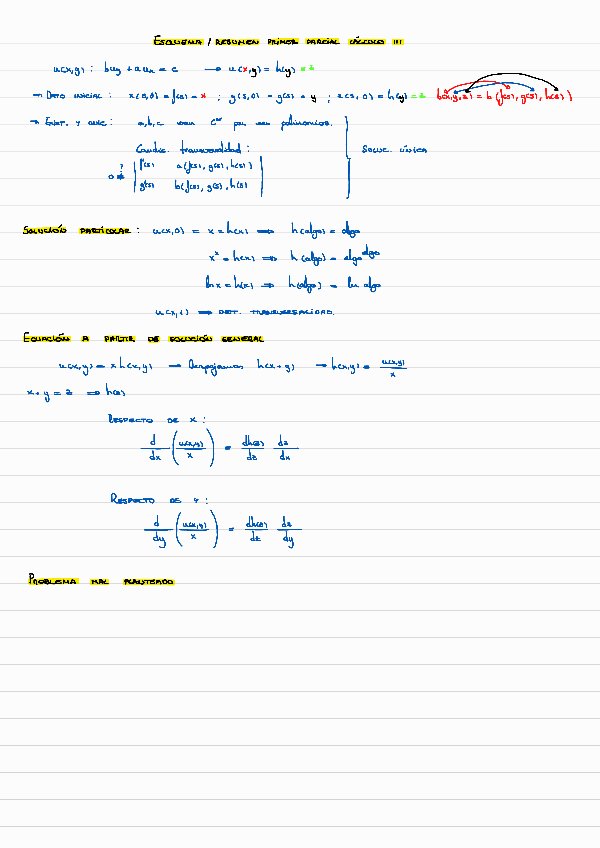 ESQUEMA / RESUMEN PRIMER PARCIAL CÁLCULO III
u(x,y) : b u_y + a u_x = c → u(x,y) = h(y) = z
→ DATO INICIAL : x(s,0) = f(s) = x ; y(s,0) = g(s) = y ; z(s,0) = h(y) = z b(x,y,z) = b (f(s), g(s), h(s))
→ EXIST. Y UNIC : a,b,c sean C^∞ por ser polinomios.
Condic. transversalidad : SOLUC. ÚNICA
0 ≠ | f'(s) a(f(s), g(s), h(s)) |
? | g'(s) b(f(s), g(s), h(s)) |
SOLUCIÓN PARTICULAR : u(x,0) = x = h(x) ⟹ h(algo) = algo
x² = h(x) ⟹ h(algo) = algo^algo
ln x = h(x) ⟹ h(algo) = ln algo
⟹ DET. TRANSVERSALIDAD.
ECUACIÓN A PARTIR DE SOLUCIÓN GENERAL
u(x,y) = x h(x,y) → Despejamos h(x+y) → h(x,y) = u(x,y)/x
x + y = z ⟹ h(z)
RESPECTO DE X :
d/dx (u(x,y)/x) = dh(z)/dz dz/dx
RESPECTO DE Y :
d/dy (u(x,y)/x) = dh(z)/dz dz/dy
PROBLEMA MAL PLANTEADO